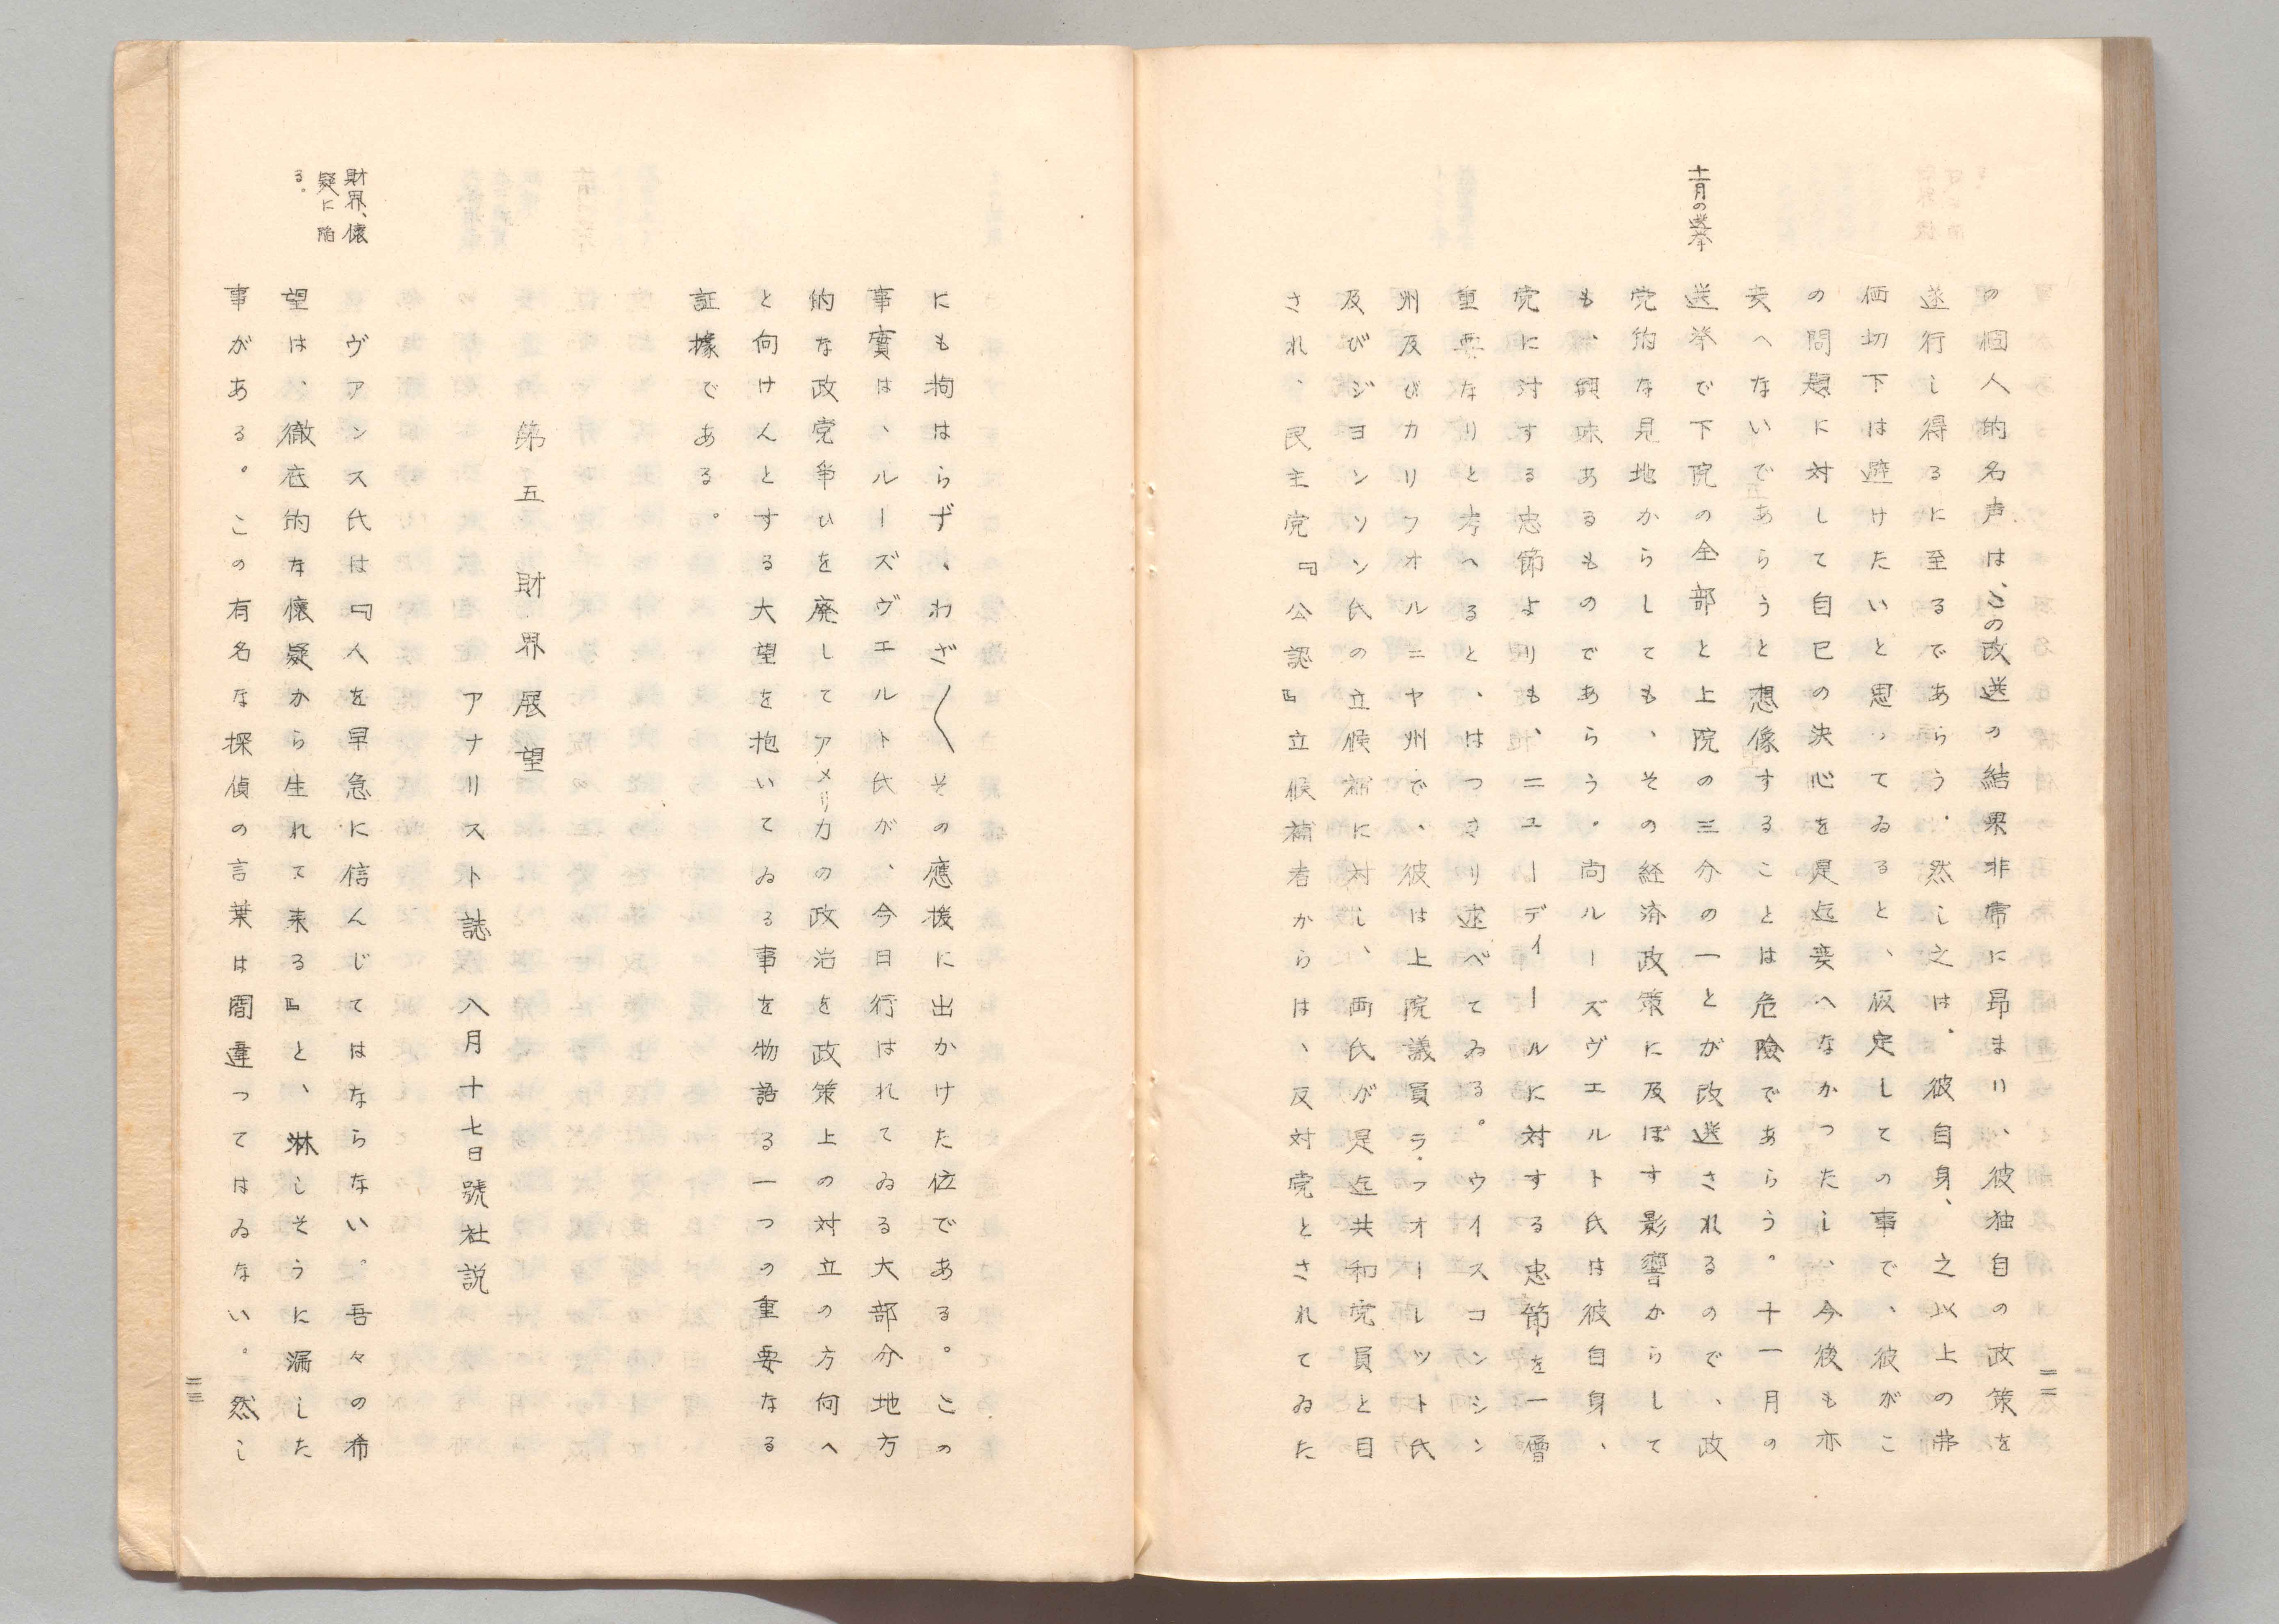 の個人的名声は、この改選の結果非常に昂まり、彼独自の政策を
遂行し得るに至るであらう。然し之は、彼自身、之以上の弗
価切下は避けたいと思ってゐると、仮定しての事で、彼がこ
の問題に対して自己の決心を是迄変へなかつたし、今後も亦
変へないであらうと想像することは危険であらう。十一月の
十一月の選挙
選挙で下院の全部と上院の三分の一とが改選されるので、政
党的な見地からしても、その経済政策に及ぼす影響からして
も、興味あるものであらう。尚ルーズヴエルト氏は彼自身、
党に対する忠節よりも、ニユーディールに対する忠節を一層
重要なりと考へると、はつきり述べてゐる。ウイスコンシン
州及びカリフオルニヤ州で、彼は上院議員ラ・フオーレツト氏
及びジヨンソン氏の立候補に対し、両氏が是迄共和党員と目
され、民主党『公認』立候補者からは、反対党とされてゐた
二二
にも拘はらず、わざ〱その應援に出かけた位である。この
事實は、ルーズヴエルト氏が、今日行はれてゐる大部分地方
的な政党争ひを廃してアメリカの政治を政策上の対立の方向へ
と向けんとする大望を抱いてゐる事を物語る一つの重要なる
証據である。
第五 財界展望
アナリスト誌 八月十七日號社説
財界、懐
疑に陥
る。
ヴアンス氏は『人を早急に信んじてはならない。吾々の希
望は、徹底的な懐疑から生れて来る』と、淋しそうに漏した
事がある。この有名な探偵の言葉は間違つてはゐない。然し
二三